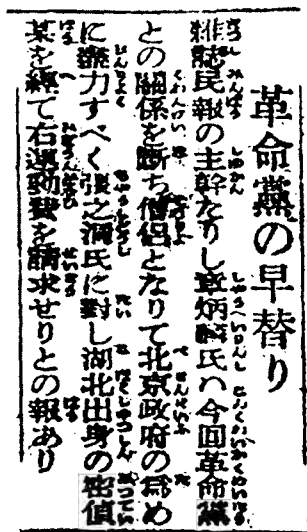 革命黨の早替り
雜誌民報の主幹たりし章炳麟氏ハ今回革命黨
との關係を斷ち僧侶となりて北京政府の爲め
に盡力すべく張之洞氏に對し湖北出身の密偵
某を經て右運動費を請求せりとの報あり